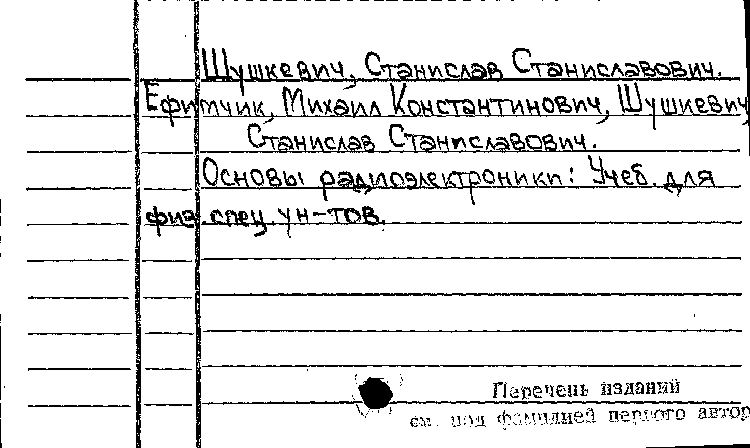 Шушкевич, Станислав Станиславович.
Ефимчик, Михаил Константинович, Шушкевич,
Станислав Станиславович.
Основы радиоэлектроники: Учеб. для
физ. спец. ун-тов.
Перечень изданий
см. под фамилией первого автор